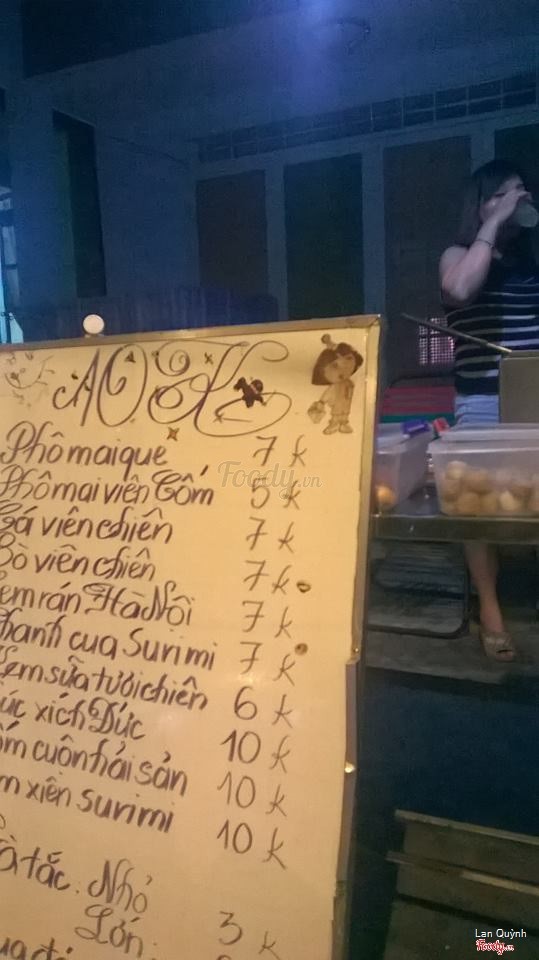 AOK
Phômaique 7 k
Phômaiviên Cốm 5 k
cá viênchiên 7 k
Bò viên chiên 7 k
emrán HàNội 7 k
hanh cua Surimi 7 k
em sữa tươi chiên 6 k
úc xích Đức 10 k
ôm cuộn hải sản 10 k
m xiên surimi 10 k
à tắc. Nhỏ 3 k
Lớn.
Foody.vn
Lan Quỳnh
Foody.vn